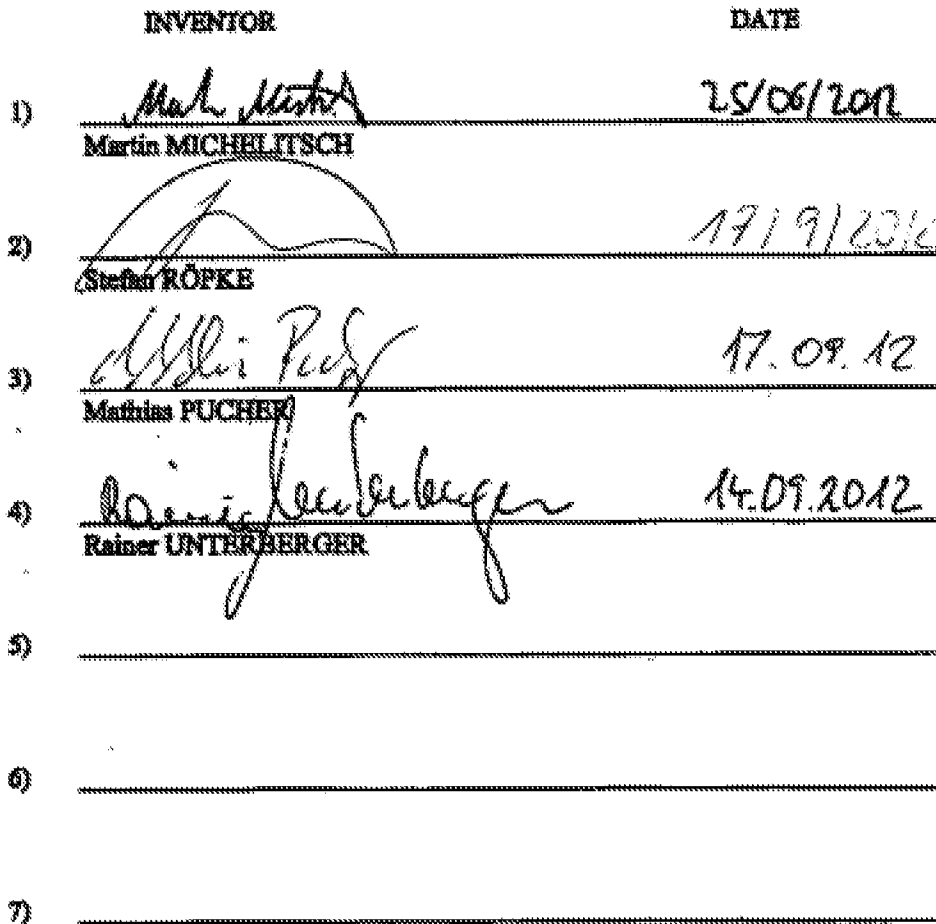 INVENTOR DATE
1) 25/06/2012
Martin MICHELITSCH
2) 17/9/2012
Stefan RÖPKE
3) 17.09.12
Mathias PUCHER
4) Rainer Unterberger 14.09.2012
Rainer UNTERBERGER
5)
6)
7)